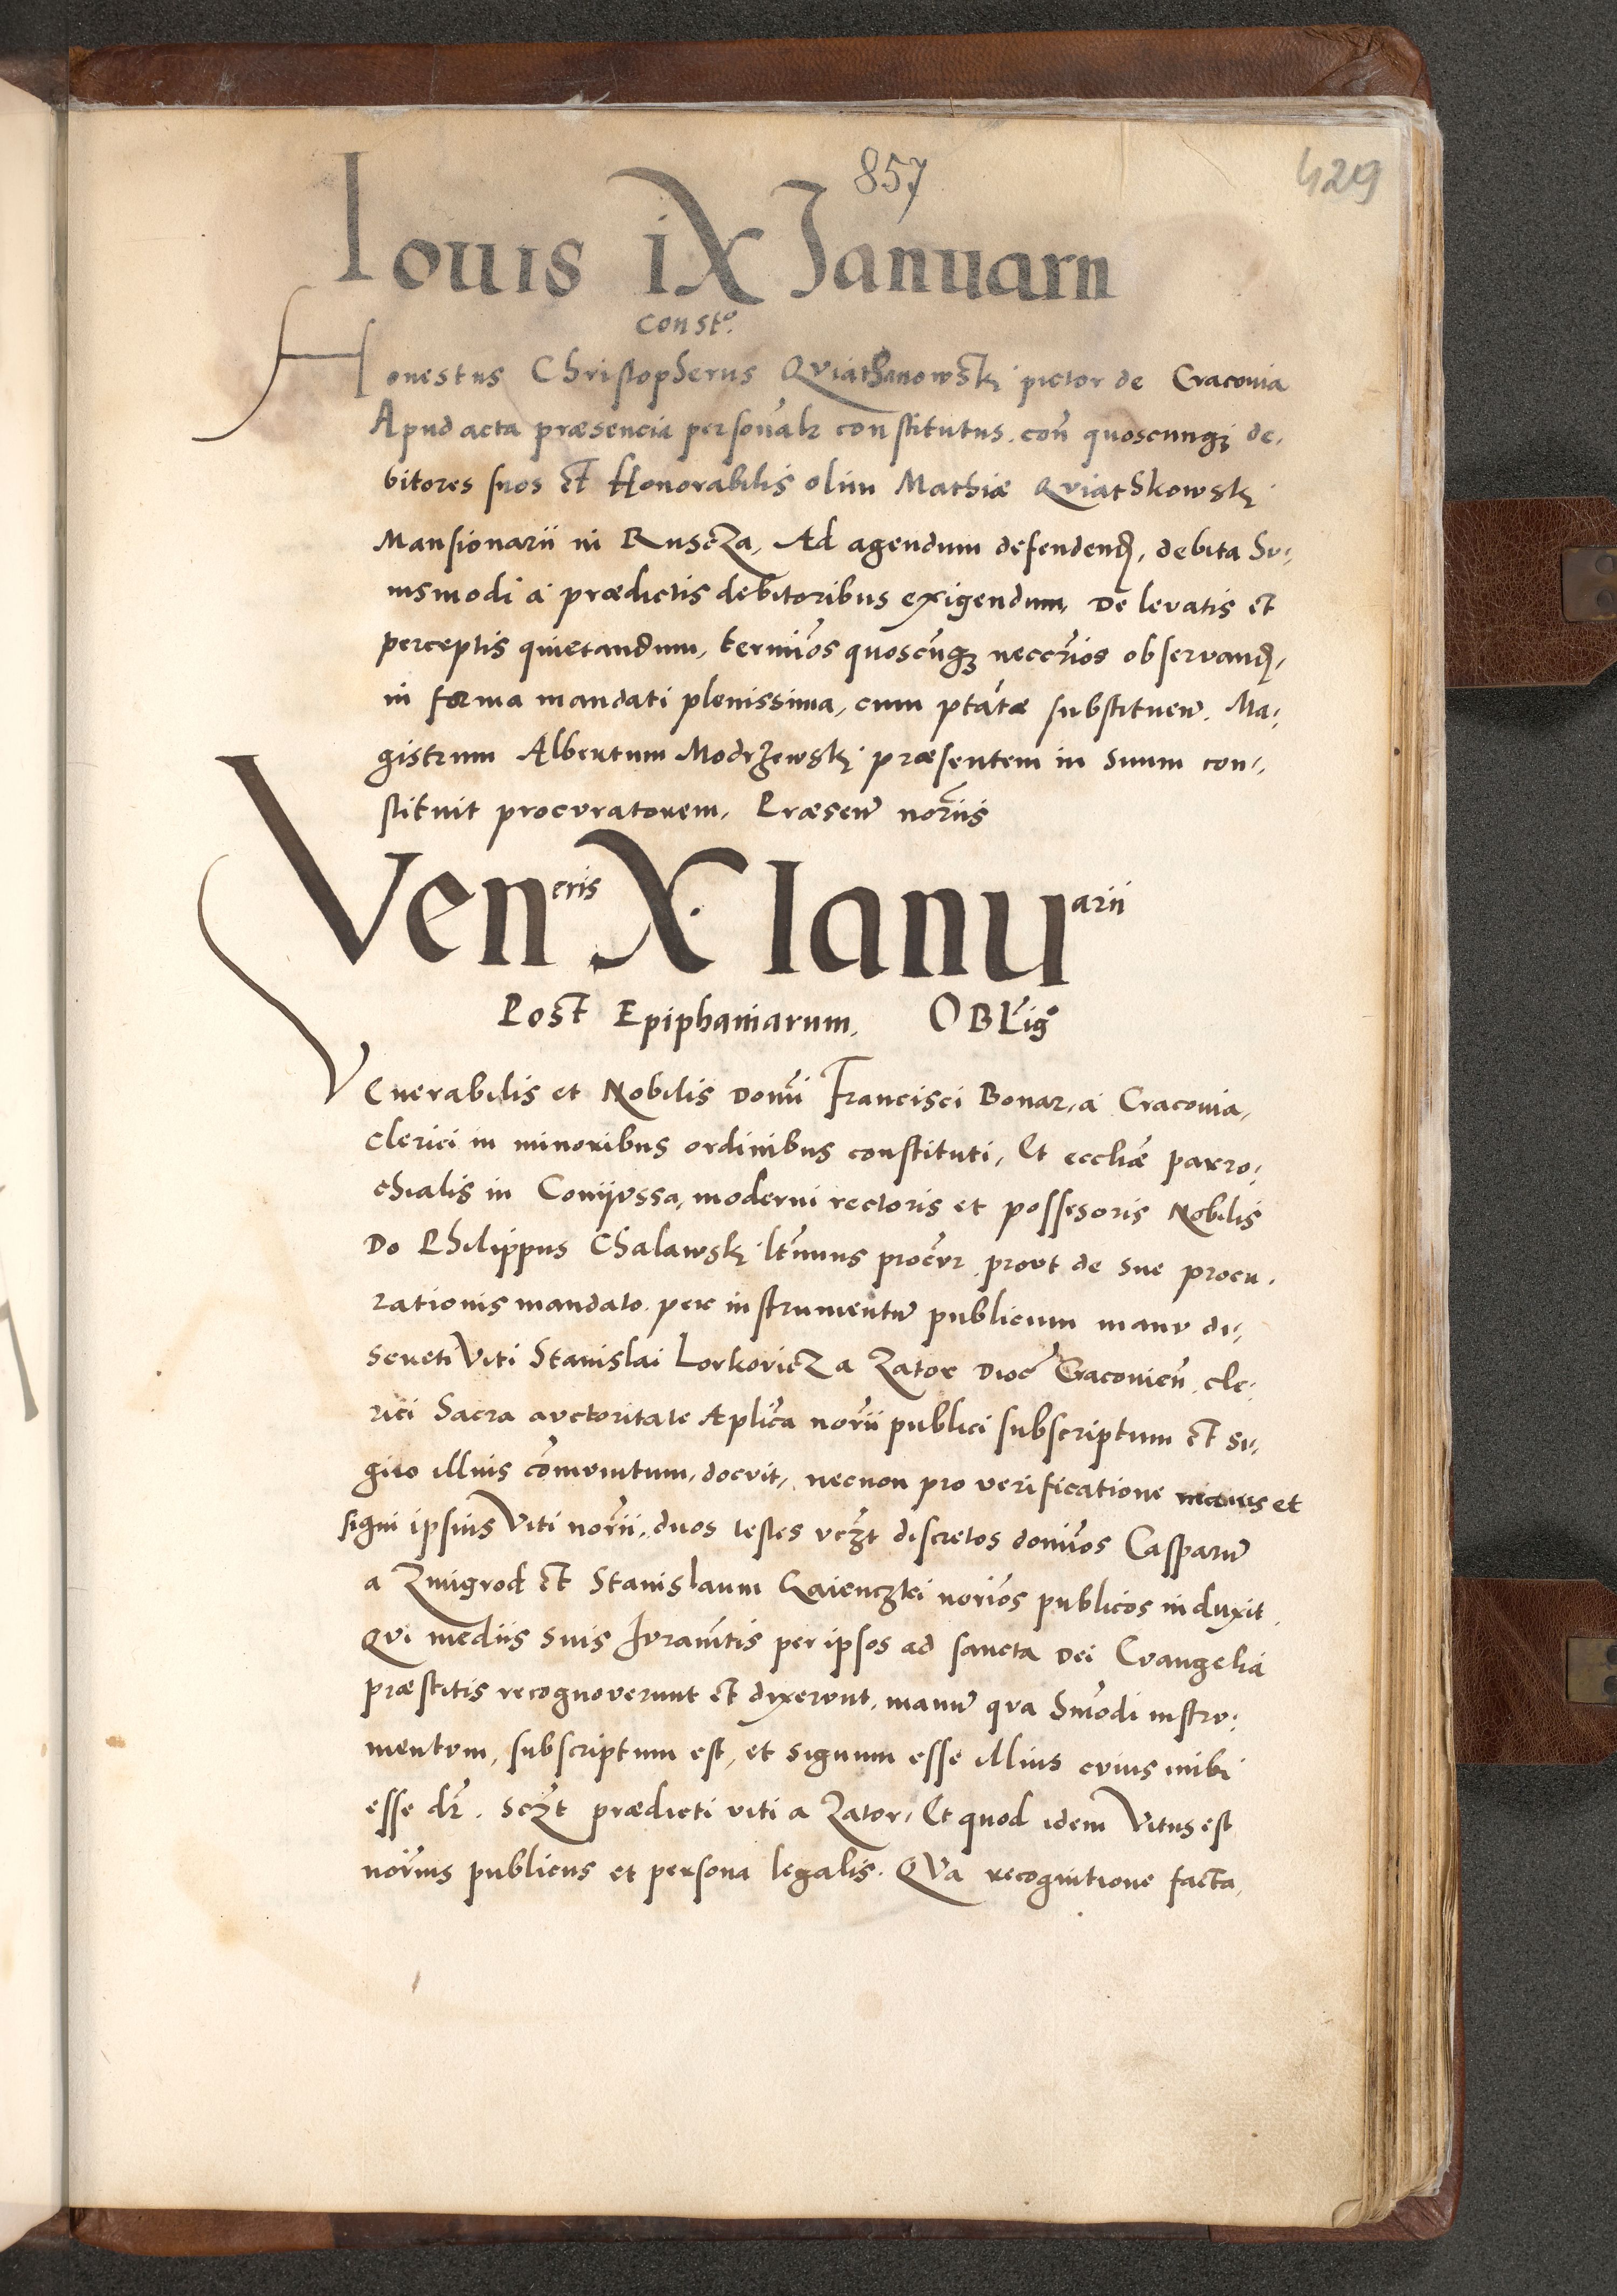 857
429
Iouis iX Ianuarii
const°.
Honestus Christopherus Qviathanowskÿ pictor de Craconia
Apud acta præsencia personãlr constitutus. con̄ quoscunqꝫ de-
bitores suos et Honorabilis olim Mathiæ Qviatkowskÿ
Mansionarii in Ruscza, Ad agendum defendendꝭ, debita hu-
iusmodi a prædictis debitoribus exigendum, De levatis et
perceptis quietandum, termĩos quoscũqꝫ neccr̃ios observandꝭ,
in forma mandati plenissima, cum ptãte substituen̄. Ma-
gistrum Albertum Modrzewskÿ præsentem in suum con-
stituit procuratorem. Præsen̄ nor̃iis
Ven eris X Ianu arii
Post Epiphaniarum. OBLig°
Venerabilis et Nobilis Domĩ Francisci Bonar, a Craconia,
clerici in minoribus ordinibus constituti, Et eccliæ parro-
chialis in Conijussa, moderni rectoris et possesoris Nobilis
Do Philippus Chalawskÿ ltm̃us procũr. prout de sue procu-
rationis mandato per instrumentū publicum manu di-
screti Viti Stanislai Lorkovicz a Zator Dioc̃ Craconien̄. cle-
rici Sacra auctoritate Aplĩca nor̃ii publici subscriptum et si-
gno illius com̃unitum, docuit, necnon pro verificatione manus et
signi ipsius Viti nor̃ii, duos testes vcꝫt discretos domĩos Casparū
a Zmigrod et Stanislaum Gaienczki nor̃ios publicos induxit.
Qvi mediis suis Juramĩtis per ipsos ad sancta Dei Evangelia
præstitis recognoverunt et dixerunt, manū qua hm̃odi instru-
mentum, subscriptum est, et signum esse illius cuius inibi
esse dr̃. scꝫt prædicti viti a Zator, Et quod idem Vitus est
nor̃ius publicus et persona legalis. QVa recognitione facta,